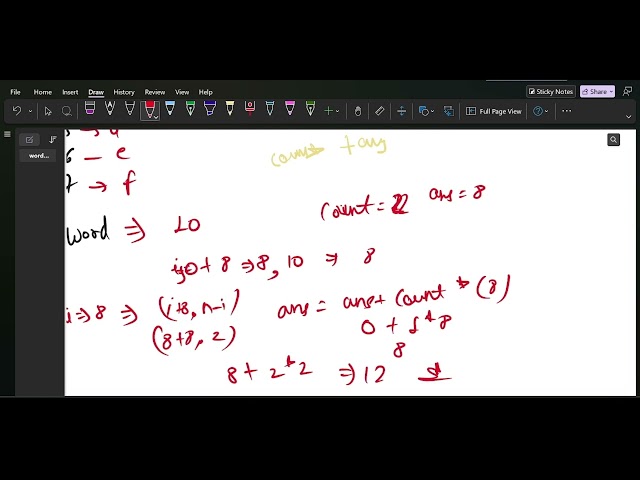 File Home Insert Draw History Review View Help
Sticky Notes Share
Full Page View
word...
6 — e
7 → f
count → + ans
word ⇒ 10
count = 2 ans = 8
i=0 + 8 ⇒ 8, 10 ⇒ 8
i ⇒ 8 ⇒ (i+8, n-i)
ans = ans + count * (8)
(8+8, 2)
0 + 1 * 8
8
8 + 2 * 2 ⇒ 12